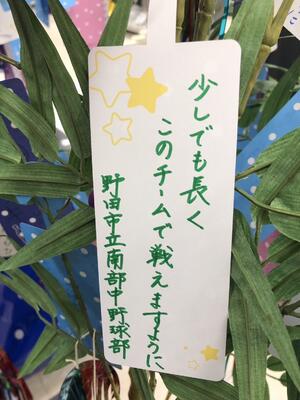 少しでも長く
このチームで戦えますように
野田市立南部中野球部